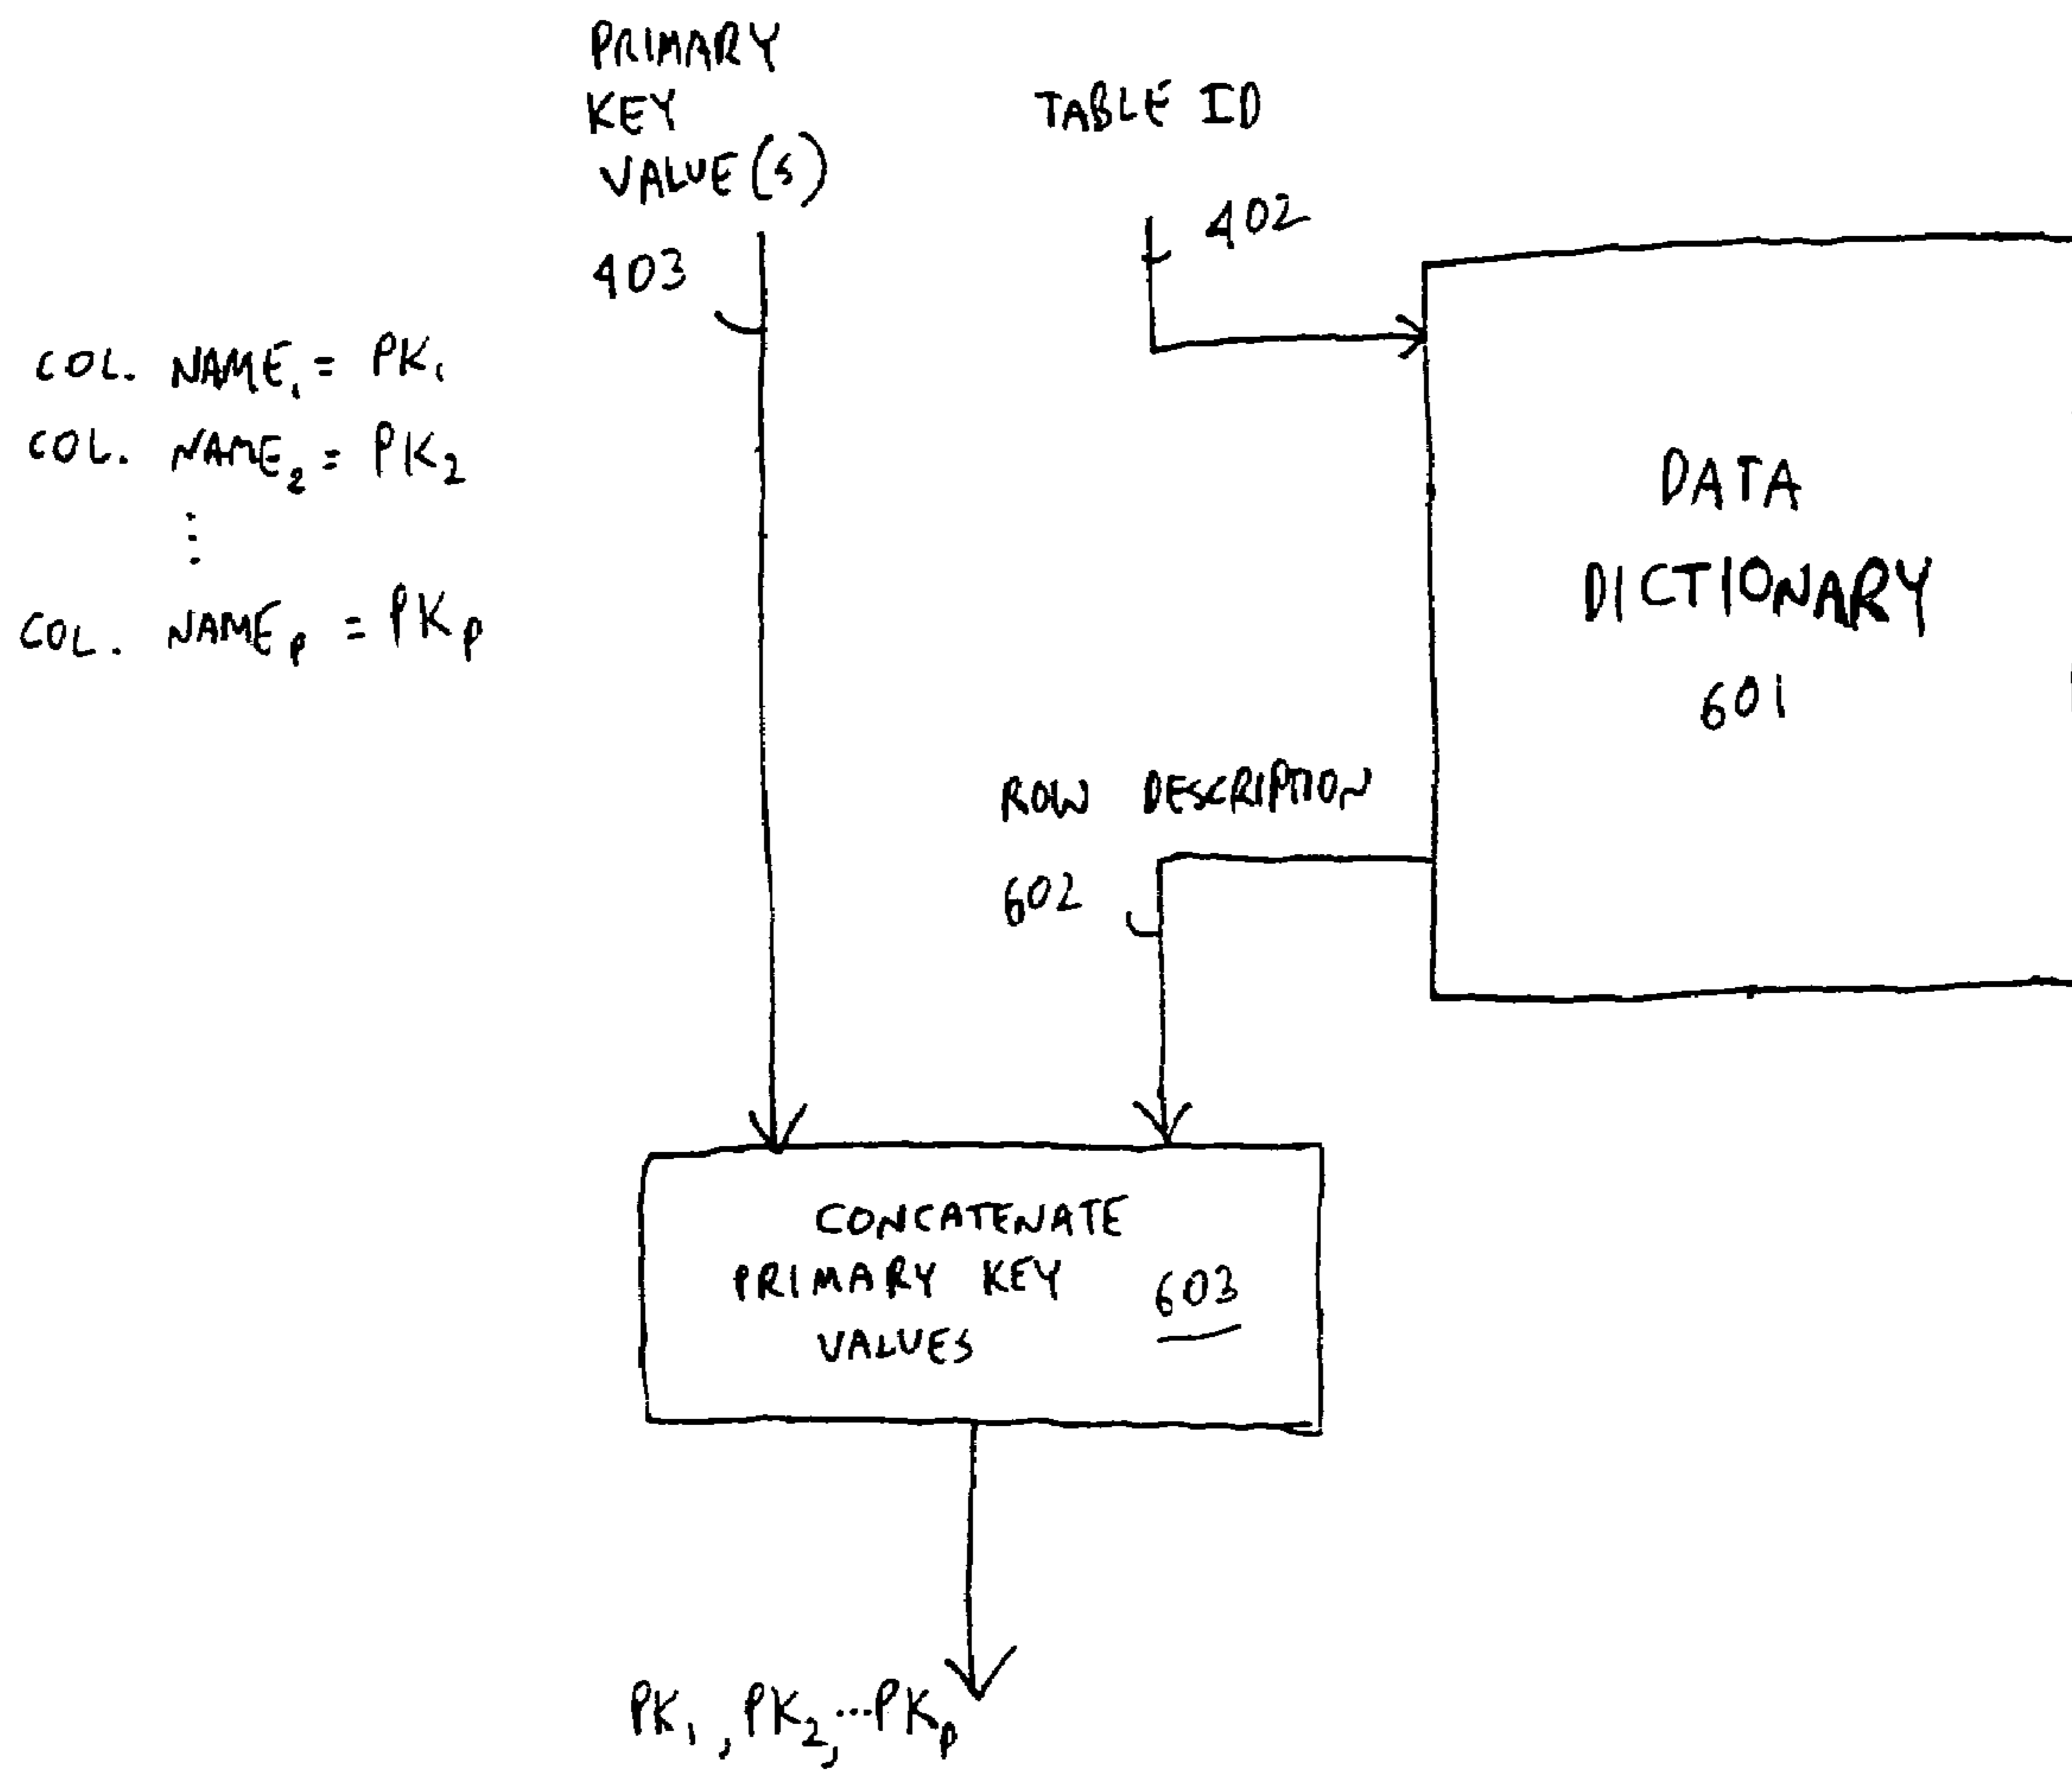 PRIMARY
KEY
VALUE(S)
403
TABLE ID
402
COL. NAME₁ = PK₁
COL. NAME₂ = PK₂
⋮
COL. NAMEₚ = PKₚ
DATA
DICTIONARY
601
ROW DESCRIPTION
602
CONCATENATE
PRIMARY KEY 603
VALUES
PK₁, PK₂, ...PKₚ